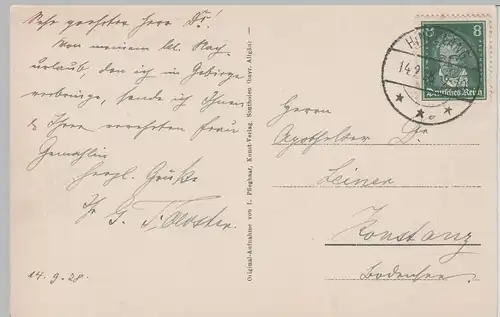 Sehr geehrter Herr Dr!
Von meinem kl. Nach-
urlaub, den ich im Gebirge
verbringe, sende ich Ihnen
& Ihrer verehrten Frau
Gemahlin
herzl. Grüße
Ihr G.
14.9.28.
Original-Aufnahme von L. Pfleghaar, Kunst-Verlag, Sonthofen (bayr. Allgäu)
8
Deutsches Reich
14.9
Herrn
Apotheker Dr.
Leiner
Konstanz
Bodensee.